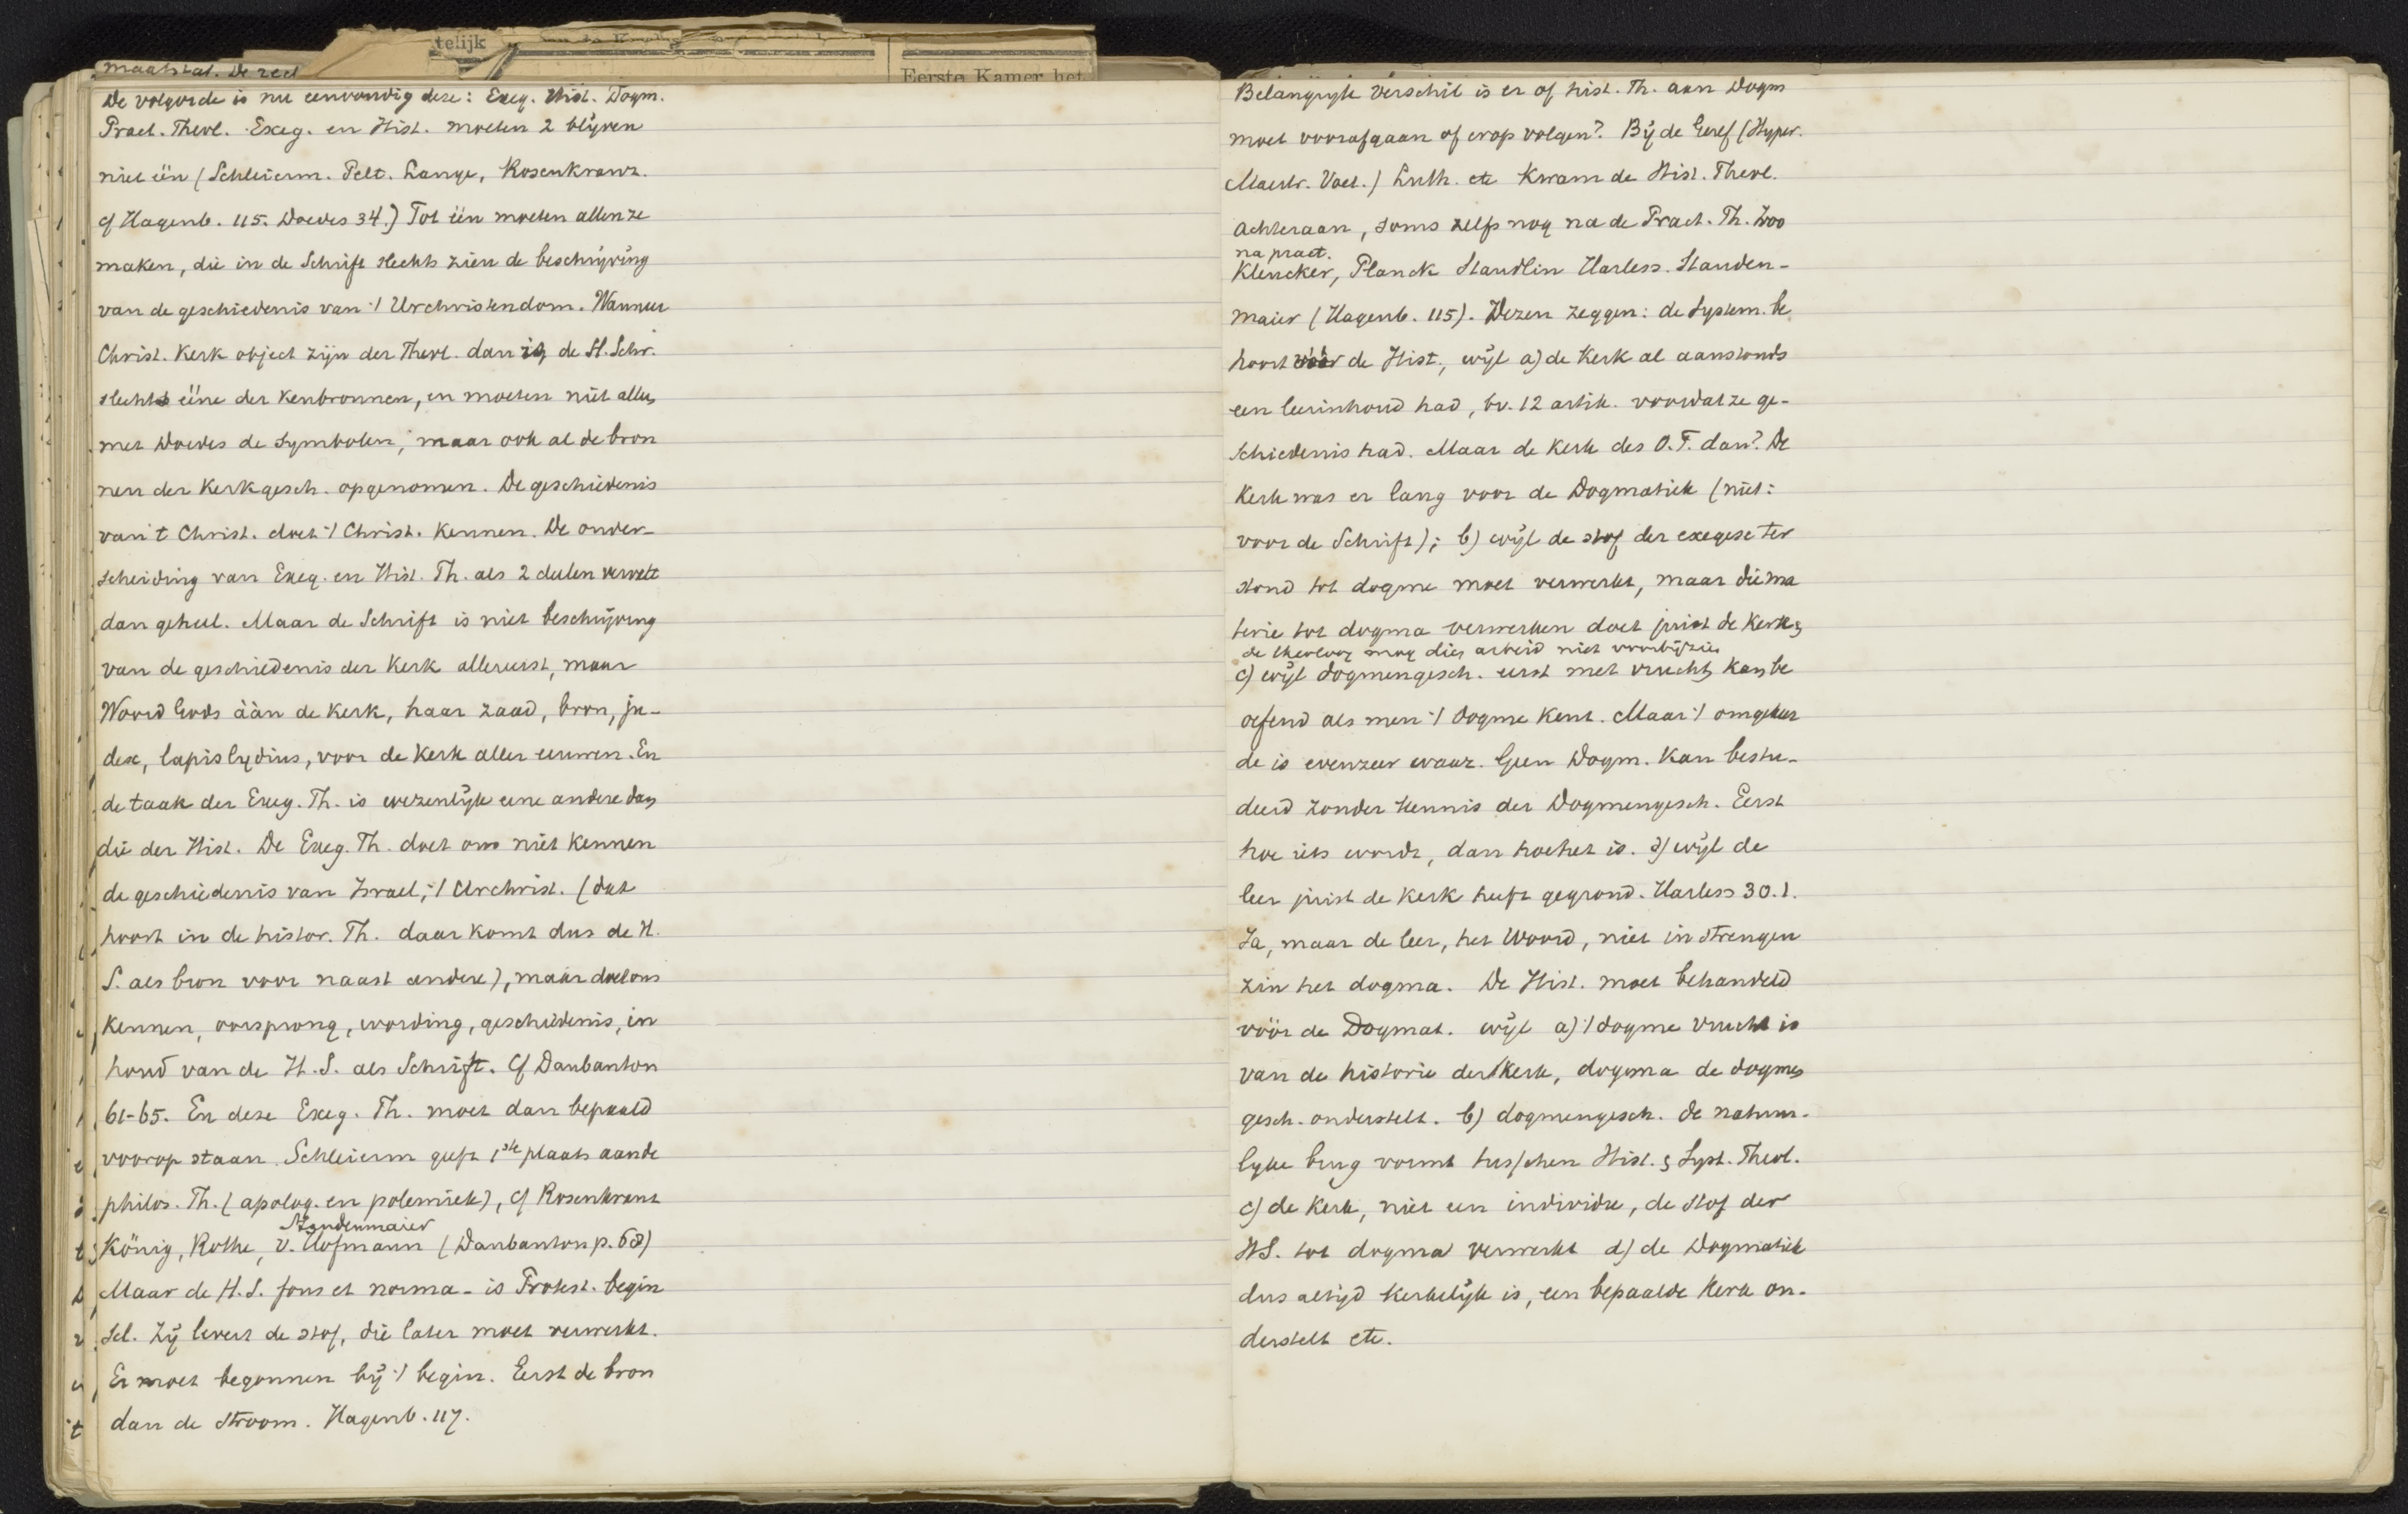 telijk
Eerste Kamer het
maatstaf. De
De volgorde is nu eenvoudig deze: Exeg. Hist. Dogm.
Pract. Theol. Exeg. en Hist. moeten 2 blijven
niet één (Schleierm. Pelt. Lange, Rosenkranz.
cf Hagenb. 115. Doedes 34.) Tot één moeten allen ze
maken, die in de Schrift slechts zien de beschrijving
van de geschiedenis van 't Urchristendom. Wanneer
Christ. Kerk object zijn der Theol. dan is de H. Schr.
slechts ééne der kenbronnen, en moeten niet alleen
met Doedes de Symbolen, maar ook al de bron
nen der Kerkgesch. opgenomen. De geschiedenis
van 't Christ. doet 't Christ. kennen. De onder-
scheiding van Exeg. en Hist. Th. als 2 deelen vervalt
dan geheel. Maar de Schrift is niet beschrijving
van de geschiedenis der Kerk allereerst, maar
Woord Gods àan de Kerk, haar zaad, bron, ju-
dex, lapis lydius, voor de Kerk aller eeuwen. En
de taak der Exeg. Th. is wezenlijk eene andere dan
die der Hist. De Exeg. Th. doet ons niet kennen
de geschiedenis van Israel, 't Urchrist. (dat
hoort in de histor. Th. daar komt dus de H.
S. als bron voor naast andere), maar doet ons
kennen, oorsprong, wording, geschiedenis, in
houd van de H.S. als Schrift. Cf Daubanton
61-65. En deze Exeg. Th. moet dan bepaald
voorop staan. Schleierm geeft 1ste plaats aan de
philos. Th. (apolog. en polemiek), cf Rosenkrant
Staudenmaier
König, Rothe, v. Hofmann (Daubanton p. 68)
Maar de H.S. fons et norma - is Protest. begin
sel. Zij levert de stof, die later moet verwerkt.
Er moet begonnen bij 't begin. Eerst de bron
dan de stroom. Hagenb. 117.
Belangrijk verschil is er of hist. Th. aan Dogm
moet voorafgaan of erop volgen? Bij de Geref (Hyper.
Maestr. Voet.) Luth. etc kwam de Hist. Theol.
achteraan, soms zelfs nog na de Pract. Th. Zoo
na pract.
Kleucker, Planck Staudlin Harless. Stauden-
maier (Hagenb. 115). Dezen zeggen: de System. be
hoort vóór de Hist., wijl a) de Kerk al aanstonds
een leerinhoud had, bv. 12 artik. voordat ze ge-
schiedenis had. Maar de Kerk des O.T. dan? De
Kerk was er lang voor de Dogmatiek (niet:
voor de Schrift); b) wijl de stof der exegese ter
stond tot dogme moet verwerkt, maar die ma
terie tot dogma verwerken doet juist de Kerk &
de theoloog mag dien arbeid niet voorbijzien
c) wijl dogmengesch. eerst met vrucht kan be
oefend als men 't dogme kent. Maar 't omgekeer
de is evenzeer waar. Geen Dogm. kan bestu-
deerd zonder kennis der Dogmengesch. Eerst
hoe iets wordt, dan hoe het is. d) wijl de
leer juist de Kerk heeft gegrond. Harless 30.1.
Ja, maar de leer, het Woord, niet in strengen
zin het dogma. De Hist. moet behandeld
vóór de Dogmat. wijl a) 't dogme vrucht is
van de historie der Kerk, dogma de dogmen
gesch. onderstelt. b) dogmengesch. de natuur-
lijke brug vormt tusschen Hist. & Syst. Theol.
c) de Kerk, niet een individu, de stof der
HS. tot dogma verwerkt d) de Dogmatiek
dus altijd kerkelijk is, een bepaalde Kerk on-
derstelt etc.